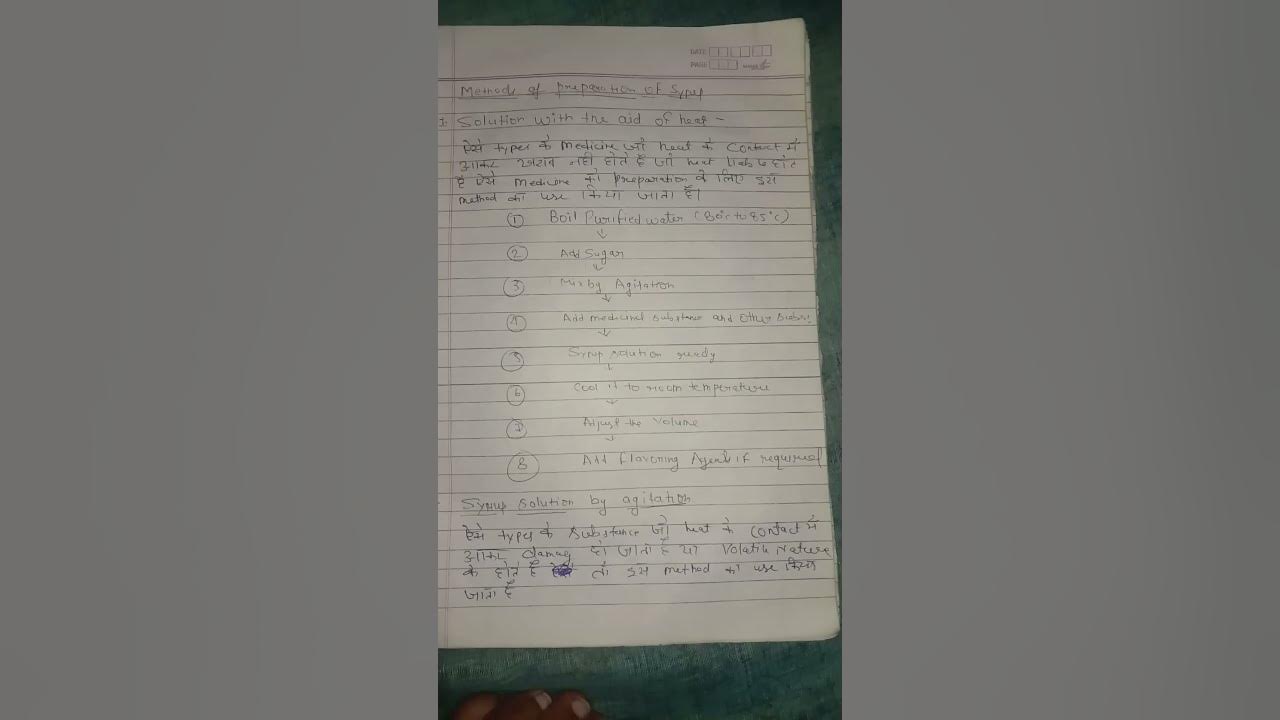 DATE
PAGE
Methods of preparation of Syrup
1. Solution with the aid of heat -
ऐसे types के Medicine जो heat के Contact में
आकर खराब नही होते हैं जो heat होते
है ऐसे Medicine को preparation के लिए इस
method का use किया जाता हैं।
① Boil Purified water (80°c to 85°c)
↓
② Add Sugar
↓
③ Mix by Agitation
↓
④ Add medicinal substance and Other
↓
⑤ Syrup solution ready
↓
⑥ Cool it to room temperature
↓
⑦ Adjust the Volume
↓
⑧ Add flavoring Agent if required
Syrup solution by agitation
ऐसे types के substance जो heat के contact में
आकर damag हो जाता है या Volatile Nature
के होते हैं तो इस method का use किया
जाता है